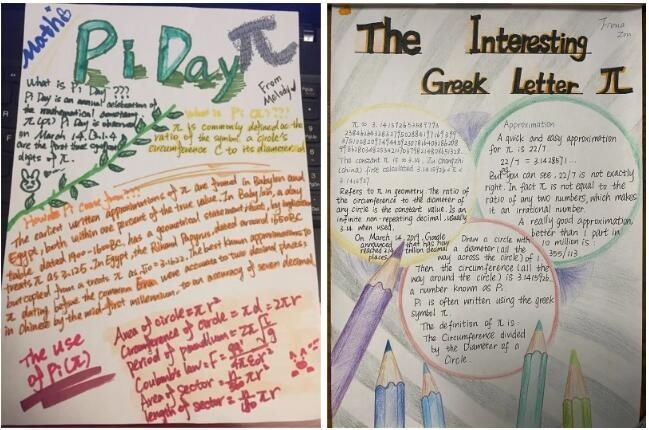 Maths
Pi Day π
From Melody
What is Pi Day ???
Pi Day is an annual celebration of
the mathematical constant
π (pi) Pi Day is observed
on March 14. (3.1.4
are the first three
digits of π.
What is Pi???
π is commonly defined as the
ratio of the
circumference C to its diameter d
How does Pi come from???
The earliest written approximations of π are found in Babylon and
Egypt, both within one percent of the true value. In Babylon, a clay
tablet dated 1900 BC has a geometrical statement that, by implication
treats π as 3.125. In Egypt, the Rhind Papyrus, dated around 1650BC
but copied from a
π dating before the common Era were accurate to two decimal places;
in Chinese by the mid-first millennium, to an accuracy of seven decimal.
The use
of Pi (π)
Area of circle = πr²
Circumference of circle = πd = 2πr
period of pendulum = 2π
Coulomb's law = F =
Area of sector = πr²
length of sector = πr
The Interesting
Greek Letter π
π ≈ 3.14159265358979
The constant π is ≈ 3.14. Zu Chongzhi
(China) first calculated 3.1415926 < π <
3.1415927
Refers to π in geometry. The ratio of
the circumference to the diameter of
any circle is the constant value. Is an
infinite non-repeating decimal, usually
3.14 when used.
On March 14 2019, Google
announced that
trillion decimal
places.
Approximation
A quick and easy approximation
for π is 22/7
22/7 = 3.1428571...
But you can see, 22/7 is not exactly
right. In fact π is not equal to the
ratio of any two numbers, which makes
it an irrational number.
A really good approximation,
better than 1 part in
10 million is:
355/113
Draw a circle with
a diameter (all the
way across the circle) of 1
Then the circumference (all the
way around the circle) is 3.1415926...
a number known as Pi
Pi is often written using the greek
symbol π.
The definition of π is:
The Circumference divided
by the Diameter of a
Circle.